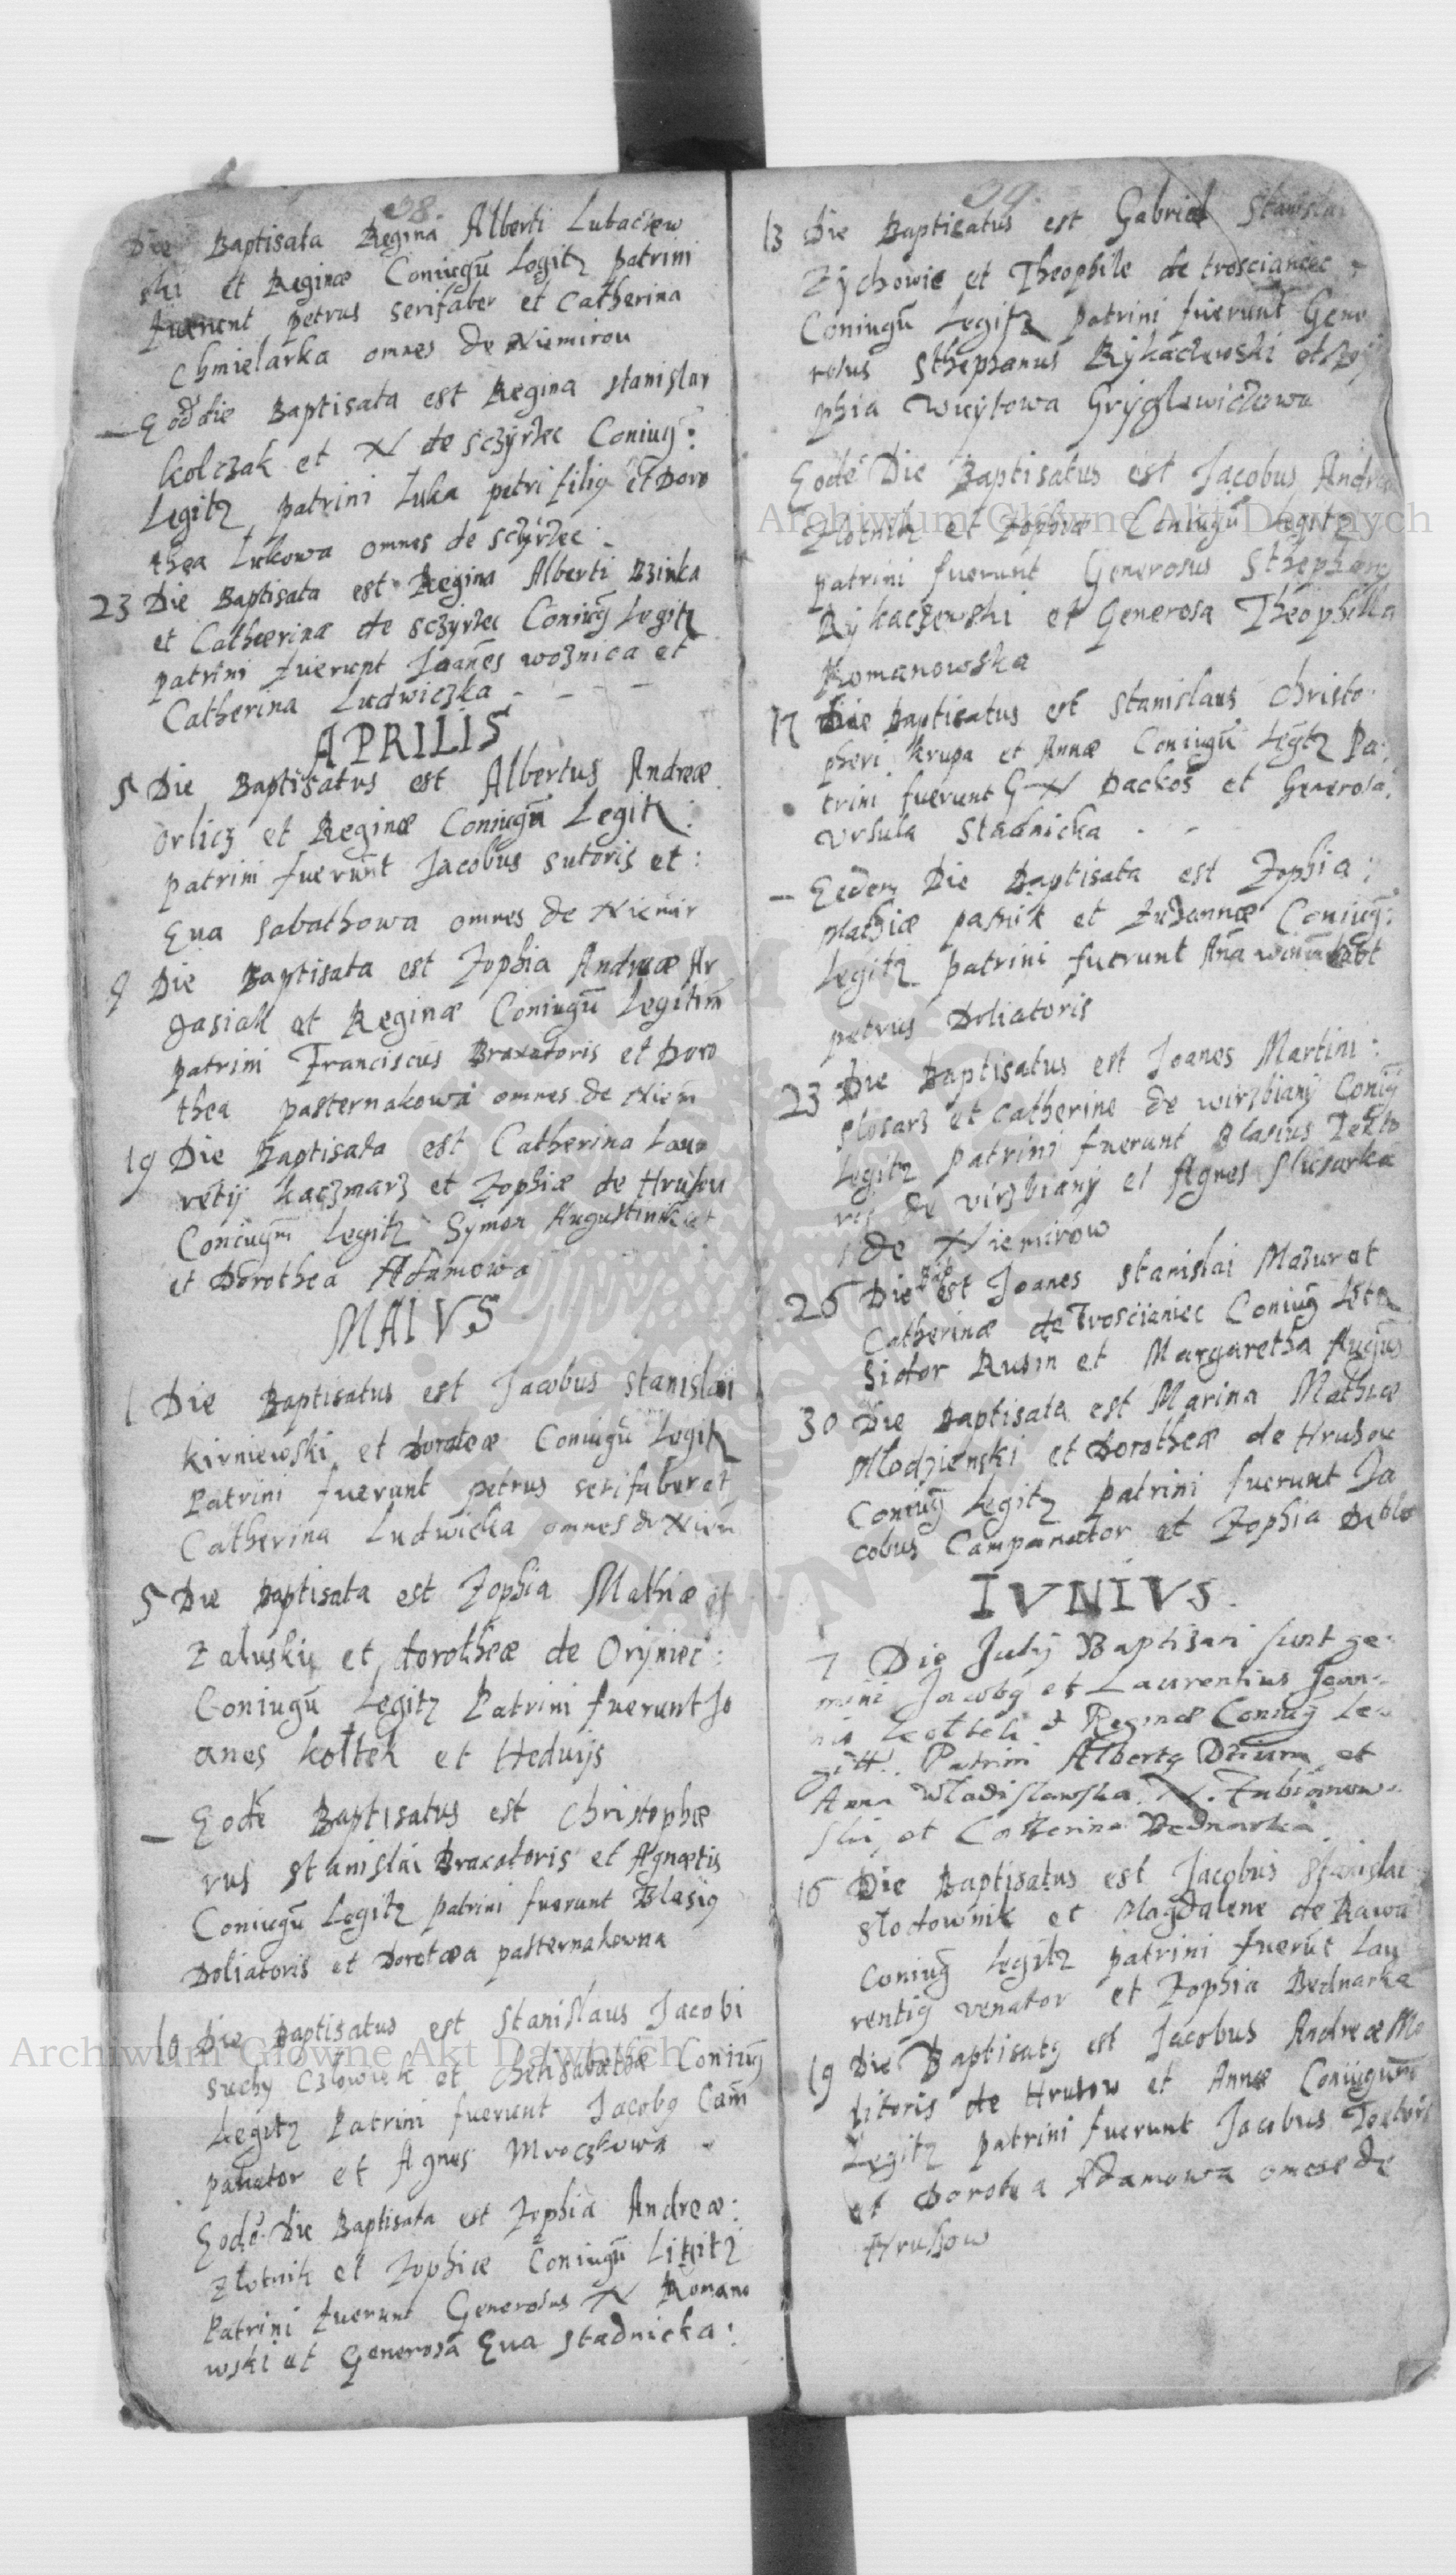 38.
Die Baptisata Regina Alberti Lubaczew
ski et Reginæ Coniugũ Legitz patrini
fuerunt petrus serifaber et Catherina
Chmielarka omnes de Niemirou
— Eod̃ die Baptisata est Regina stanislai
kolczak et N de sczyrzec Coniug̃:
Legitz patrini Luka petri filiꝰ et Doro
thea Lukowa omnes de sczyrzec
23 Die Baptisata est Regina Alberti Bzinka
et Cathærinæ de sczyrzec Coniug̃ Legitz
patrini fuerunt Joañes woznica et
Catherina Ludwiczka
APRILIS
5 Die Baptisatus est Albertus Andreæ
orlicz et Reginæ Coniugũ Legitz
patrini fuerũnt Jacobus sutoris et:
Eua sabathowa omnes de Niemir
9 Die Baptisata est Zophia Andreæ Ar
gasiak et Reginæ Coniugũ Legitim̃
patrini Franciscus Braxatoris et Doro
thea pasternakowa omnes de Niem̃
19 Die Baptisata est Catherina Laur
retij kaczmarz et Zophiæ de Hrusou
Coniugm̃ Legitz Symon Augustinik et
et Dorothea Adamowa
MAIVS
1 Die Baptisatus est Jacobus stanislai
kirniewski et doroteæ Coniugũ Legitz
Patrini fuerunt petrus serifaber et
Catherina Ludwicka omnes de Niem
5 Die Baptisata est Zophia Mathiæ et
Zaluskij et dorotheæ de Oryniec:
Coniugũ Legitz Patrini fuerunt Jo
anes koltek et Heduijs
— Eodẽ Baptisatus est Christophæ
rus stanislai Braxatoris et Agnætis
Coniugũ Legitz patrini fuerunt Blasiꝰ
Doliatoris et Dorotæa pasternakowna
10 Die Baptisatus est stanislaus Jacobi
suchy człowiek et Chelisabæthæ Coniug̃
Legitz Patrini fuerunt Jacobꝰ Cam̃
panator et Agnes Mroczkowa
Eodẽ Die Baptisata est Zophia Andreæ:
Złotnik et Zophiæ Coniugũ Litgitz
Patrini fuerunt Generosus N Romano
wski et Generosa Eua stadnicka:
39.
13 Die Baptisatus est Gabriel Stanislai
Zychowie et Theophile de trosciancec
Coniugũ Legitz patrini fuerunt Gene
rosus Stephanus Rykaczewski et
phia wuytowa Gryglewiczowa
Eodẽ Die Baptisatus est Jacobus Andreæ
Złotnik et Zophiæ Coniugũ Legitz
patrini fuerunt Generosus Stephanꝰ
Rykaczewski et Generosa Theophilla
Romanowska
17 Die Baptisatus est stanislaus Christo
pheri krupa et Annæ Coniugũ Legitz Pa:
trini fuerunt G N Dackos et Generosa
Vrsula Stadnicka
— Eodem Die Baptisata est Zophia:
Mathiæ pasnik et Zuzannæ Coniug̃:
Legitz patrini fuerunt Aña
petrus Doliatoris
23 Die Baptisatus est Joanes Martini:
slosarz et Catherine de wirzbiany Coniug̃
Legitz patrini fuerunt Blasius Texto
ris de virzbiany et Agnes slusarka
de Niemirow
26 Die bap est Joanes stanislai Mazur et
Catherinæ de Trosciianiec Coniug̃ Letz
Sidor Rusin et Margaretha Augus
30 Die Baptisata est Marina Mathiæ
Młodzienski et dorotheæ de Hrusou
Coniug̃ Legitz patrini fuerunt Ja
cobus Campanator et Zophia
IVNIVS.
7 Die Julij Baptisati sunt ge:
mini Jacobꝰ et Laurentius Joan
nis Koltek et Reginæ Coniug̃ Le
gitt. Patrini Albertꝰ et
Anna Wladislawska. N. Lubianow
ski, et Catherina Bednarka
16 Die Baptisatus est Jacobus stanislai
słodownik et Magdalene de Rawa
Coniug̃ Legitz patrini fuerũt Lau
rentiꝰ venator et Zophia Bednarka
19 Die Baptisatꝰ est Jacobus Andreæ Mo
litoris de Hrusow et Annæ Coniugum
Legitz patrini fuerunt Jacobus Textoris
et Dorotea Adamowa omnes de
Hrusow
Archiwum Główne Akt Dawnych
Archiwum Główne Akt Dawnych